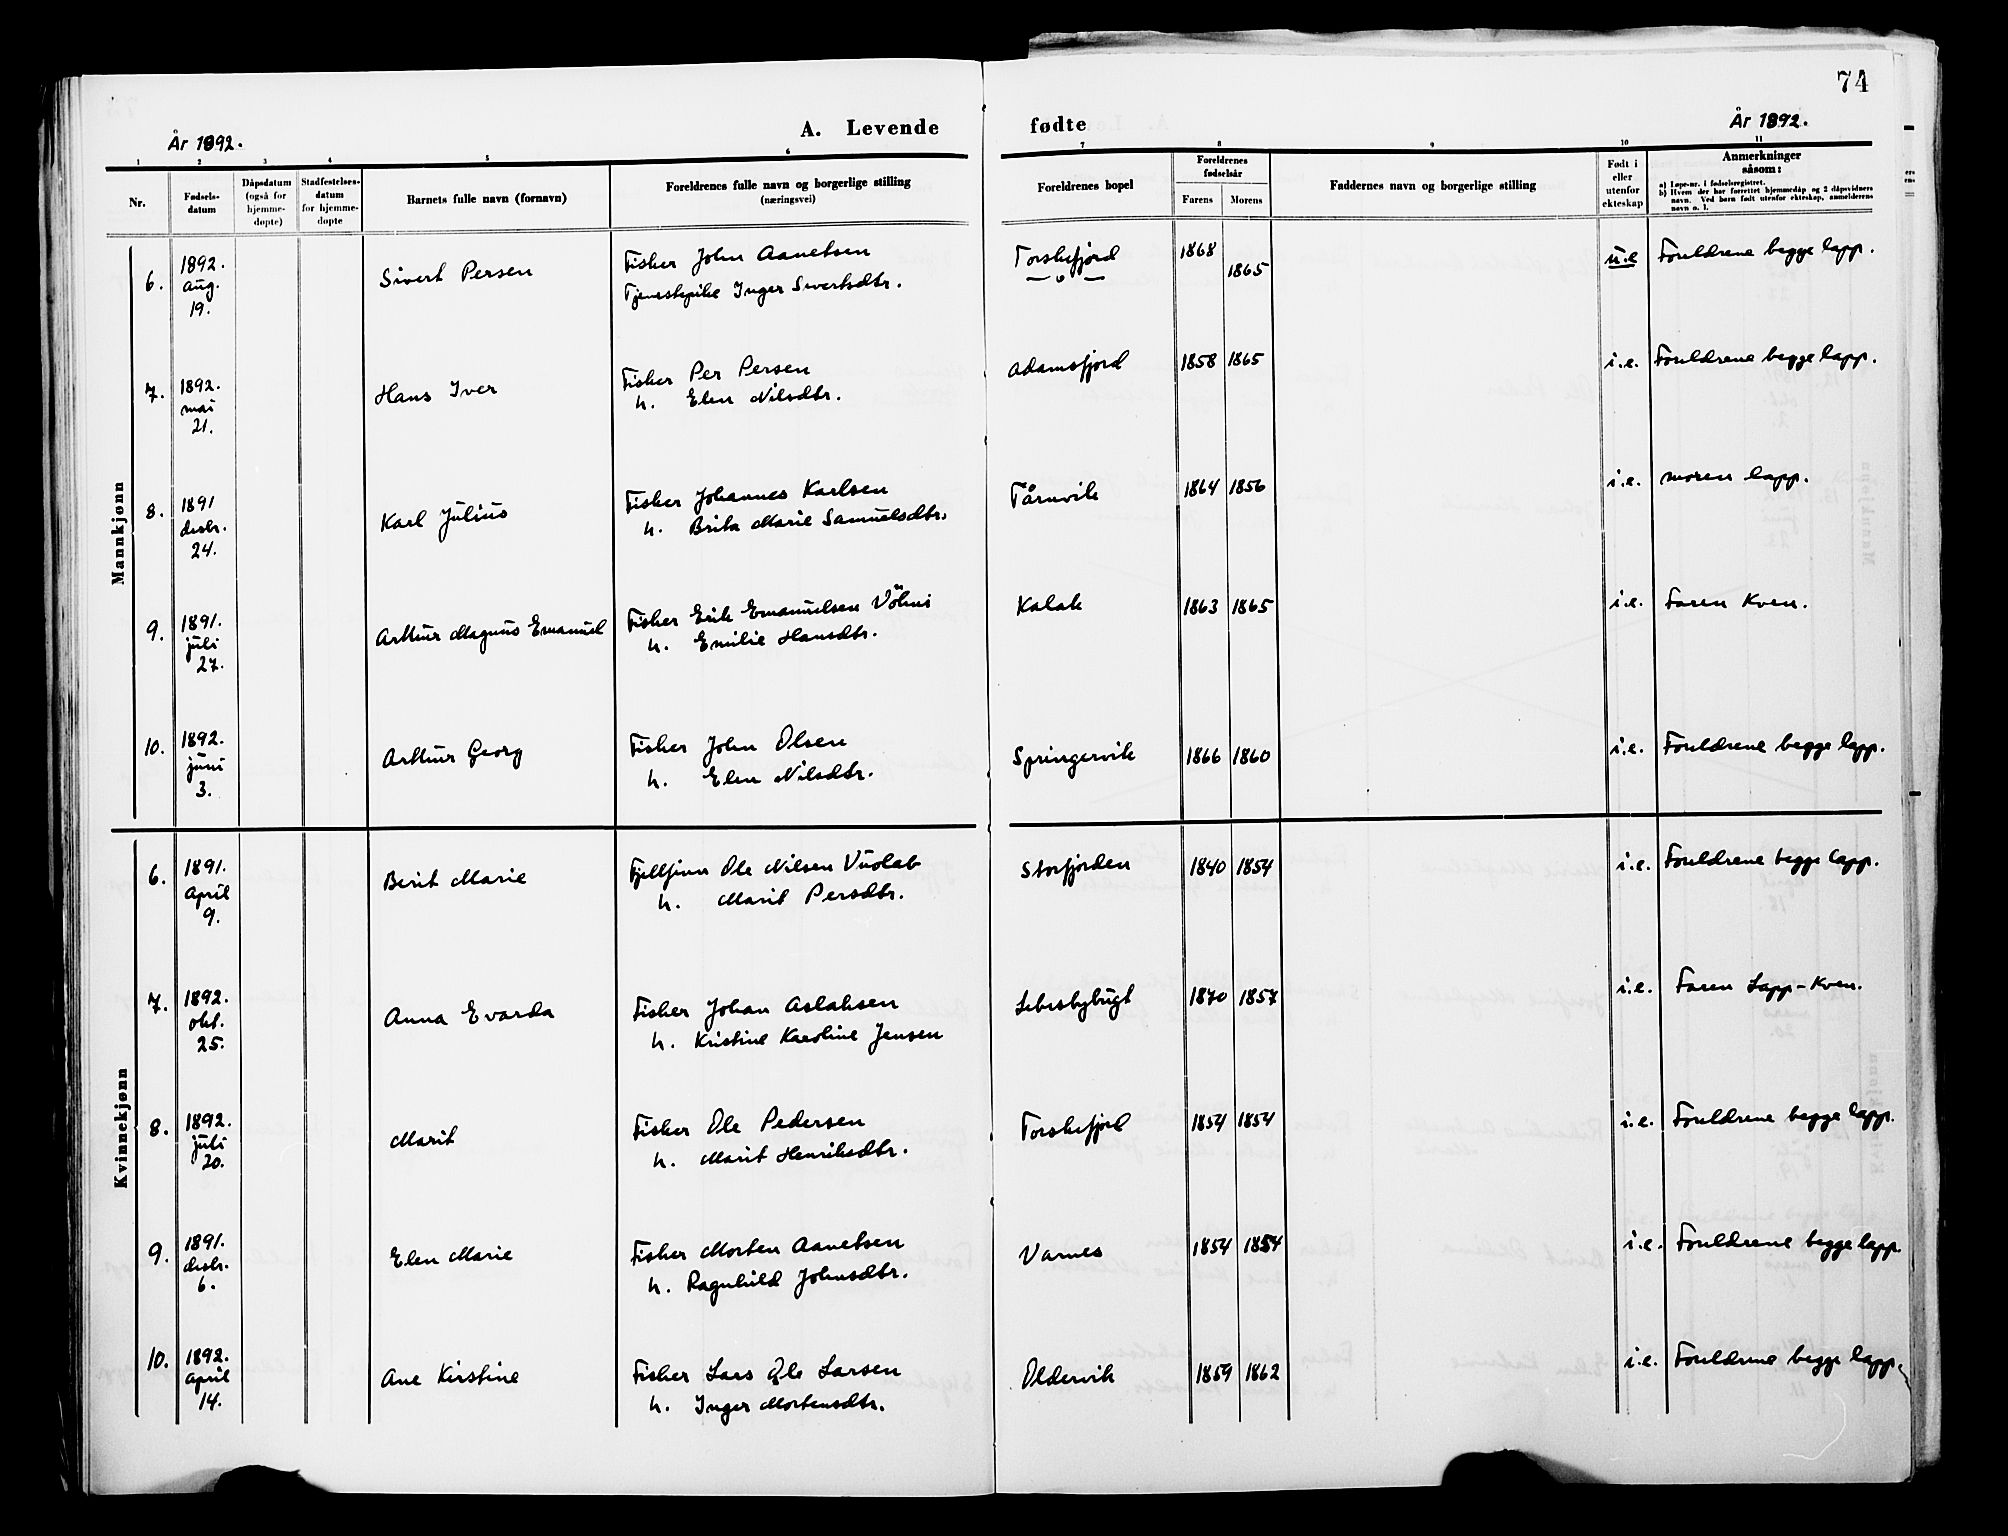 74
År 1892.
A. Levende fødte
År 1892.
1 2 3 4 5 6 7 8 9 10 11
Nr.
Fødsels-
datum
Dåpsdatum
(også for
hjemme-
døpte)
Stadfestelses-
datum
for hjemme-
døpte
Barnets fulle navn (fornavn)
Foreldrenes fulle navn og borgerlige stilling
(næringsvei)
Foreldrenes bopel
Foreldrenes
fødselsår
Farens Morens
Faddernes navn og borgerlige stilling
Født i
eller
utenfor
ekteskap
Anmerkninger
såsom:
a) Løpe-nr. i fødselsregistret.
b) Hvem der har forrettet hjemmedåp og 2 dåpsvidners
navn. Ved barn født utenfor ekteskap, anmelderens
navn o. l.
Mannkjønn
6. 1892. aug. 19. Sivert Persen
Fisker John Aanetsen
Tjenestepike Inger Sivertsdtr.
Torskefjord
— " —
1868 1865 u.e Foreldrene begge lapp.
7. 1892. mai 21. Hans Iver
Fisker Per Persen
h. Elen Nilsdtr.
Adamsfjord 1858 1865 i.e. Foreldrene begge lapp.
8. 1891 desbr. 24. Karl Julius
Fisker Johannes Karlsen
h. Brita Marie Samuelsdtr.
Tårnvik 1864 1856 i.e. moren lapp.
9. 1891. juli 27. Arthur Magnus Emanuel
Fisker Erik Emanuelsen
h. Emilie Hansdtr.
Kalak 1863 1865 i.e. Faren Kven.
10. 1892. juni 3. Arthur Georg
Fisker John Olsen
h. Elen Nilsdtr.
Springervik 1866 1860 i.e. Foreldrene begge lapp.
Kvinnekjønn
6. 1891. April 9. Berit Marie
Fjellfinn Ole Nilsen Vuolab
h. Marit Persdtr.
Storfjorden 1840 1854 i.e. Foreldrene begge lapp.
7. 1892. okt. 25. Anna Evarda
Fisker Johan Aslaksen
h. Kristine Karoline Jensen
Lebesbybugt 1870 1857 i.e. Faren Lapp-Kven.
8. 1892. juli 20. Marit
Fisker Ole Pedersen
h. Marit Henriksdtr.
Torskefjord 1854 1854 i.e. Foreldrene begge lapp.
9. 1891. desbr. 6. Elen Marie
Fisker Morten Aanetsen
h. Ragnhild Johnsdtr.
Varnes 1854 1854 i.e. Foreldrene begge lapp.
10. 1892. April 14. Ane Kirstine
Fisker Lars Ole Larsen
h. Inger Mortensdtr.
Oldervik 1859 1862 i.e. Foreldrene begge lapp.